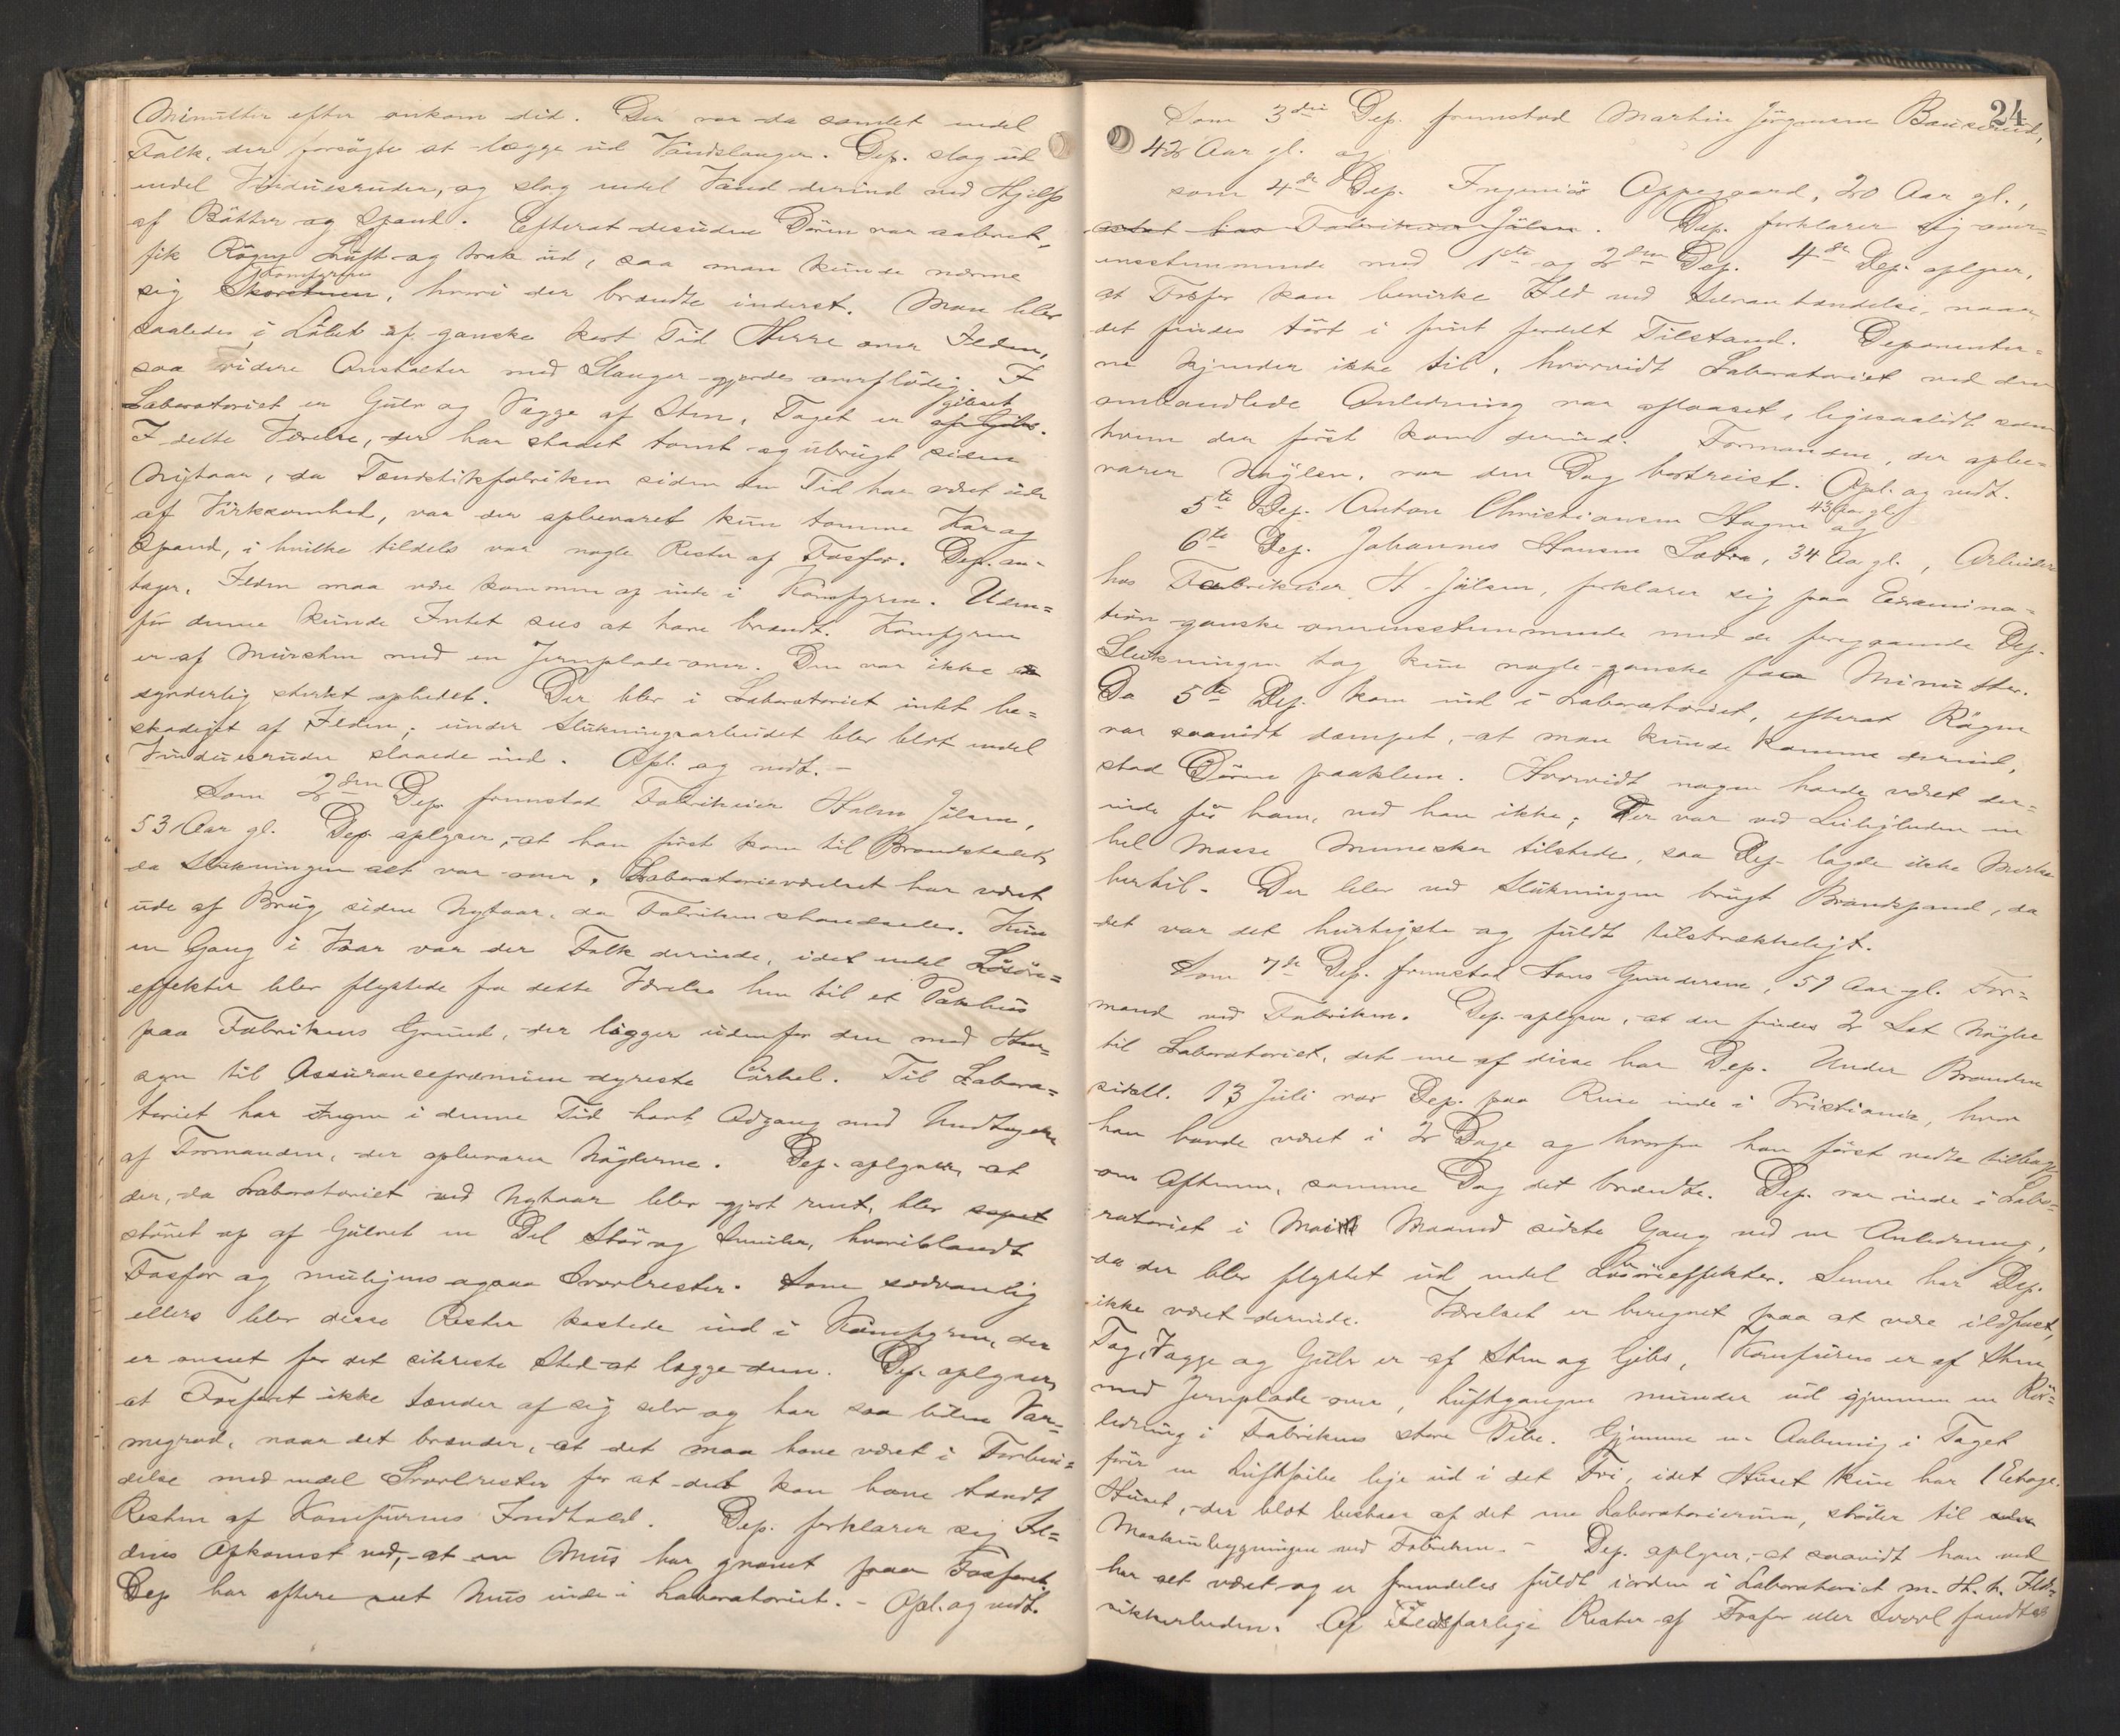 Minutter efter ankom did. Der var da samlet endel
Folk, der forsøgte at lægge ud Vandslanger. Dep. slog ud
endel Vinduesruder, og slog endel Vand derind ved Hjelp
af Bøtter og Spand. Efterat desuden Døren var aabnet,
fik Røgen Luft og trak ud, saa man kunde nærme
sig Skorstenen Komfyren, hvori der brændte inderst. Man blev
saaledes i Løbet af ganske kort Tid Herre over Ilden,
saa videre Anstalter med Slanger gjordes overflødig. I
Laboratoriet er Gulv og Vægge af Sten, Taget er af Gibs. gibset
I dette Værelse, der har staaet tomt og ubrugt siden
Nytaar, da Tændstikfabriken siden den Tid har været ude
af Virksomhed, var der opbevaret kun tomme Kar og
Spand, i hvilke tildels var nogle Rester af Fosfor. Dep. an-
tager, Ilden maa være kommen op inde i Komfyren. Uden=
for denne kunde Intet sees at have brændt. Komfyren
er af Mursten med en Jernplade over. Den var ikke
synderlig sterkt ophedet. Der blev i Laboratoriet intet be=
skadiget af Ilden; under Slukningsarbeidet blev blot endel
Vinduesruder slaaede ind. Opl. og vedt. -
Som 2den Dep. fremstod Fabrikeier Halvor Jølsen,
53 Aar gl. Dep. oplyser, at han først kom til Brandstedet,
da Slukningen alt var over. Laboratorieværelset har været
ude af Brug siden Nytaar, da Fabriken standsedes. Kun
en Gang i Vaar var der Folk derinde, idet endel Løsøre=
effekter blev flyttede fra dette Værelse hen til et Pakhus
paa Fabrikens Grund, der ligger udenfor den med Hen=
syn til Assurancepræmien dyreste Cirkel. Til Labora=
toriet har Ingen i denne Tid havt Adgang med Undtagelse
af Formanden, der opbevarer Nøglerne. Dep. oplyser, at
der, da Laboratoriet ved Nytaar blev gjort rent, blev sopet
af Gulvet en Del Støv og Smuler, hvoriblandt
Fosfor og muligens ogsaa Svovlrester. Som sædvanlig
ellers blev disse Rester kastede ind i Komfyren, der
er anseet for det sikreste Sted at lægge dem. Dep. oplyser,
at Fosforet ikke tænder af sig selv og har saa liden Var=
megrad, naar det brænder, at det maa have været i Forbin=
delse med endel Svovlrester for at det kan have tændt
Resten af Komfurens Indhold. Dep. forklarer sig Il=
dens Opkomst ved, at en Mus har gnavet paa Fosforet.
Dep har oftere seet Mus inde i Laboratoriet. - Opl. og vedt.
24
Som 3die Dep. fremstod Martin Jørgensen Bauserud,
42 Aar gl. og
som 4de Dep. Ingeniør Oppegaard, 20 Aar gl.,
ansat hos Fabrikeier Jølsen. Dep. forklarer sig over=
ensstemmende med 1ste og 2den Dep. 4de Dep. oplyser,
at Fosfor kan bevirke Ild ved Selvantændelse, naar
det findes tørt i fint fordelt Tilstand. Deponenter=
ne kjender ikke til, hvorvidt Laboratoriet ved den
omhandlede Anledning var aflaaset, ligesaalidt som
hvem der først kom derind. Formanden, der opbe=
varer Nøglen, var den Dag bortreist. Opl. og vedt.
5te Dep. Anton Christiansen Hagen 43 Aar gl og
6te Dep. Johannes Hansen Sætra, 34 Aar gl., Arbeider
hos Fabrikeier H. Jølsen, forklarer sig paa Examina=
tion ganske overensstemmende med de foregaaende Dep.
Slukningen tog kun nogle ganske faa Minutter.
Da 5te Dep. kom ind i Laboratoriet, efterat Røgen
var saavidt dæmpet, at man kunde komme derind,
stod Døren paaklem. Hvorvidt nogen havde været der=
inde før ham, ved han ikke; Der var ved Leiligheden en
hel Masse Mennesker tilstede, saa Dep. lagde ikke Merke
hertil. Der blev ved Slukningen brugt Brandspand, da
det var det hurtigste og fuldt tilstrækkeligt.
Som 7de Dep. fremstod Hans Gundersen, 59 Aar gl. For=
mand ved Fabriken. Dep. oplyser, at der findes 2 Sæt Nøgler
til Laboratoriet, det ene af disse har Dep. Under Branden
sidstl. 13 Juli var Dep. paa Reise inde i Kristiania, hvor
han havde været i 2 Dage og hvorfra han først vendte tilbage
om Aftenen, samme Dag det brændte. Dep. var inde i Labo=
ratoriet i Mai Maaned sidste Gang ved en Anledning,
da der blev flyttet ud endel Løsøreeffekter. Senere har Dep.
ikke været derinde. Værelset er beregnet paa at være ildfast,
Tag, Vægge og Gulv er af Sten og Gibs, Komfuren er af Sten
med Jernplade over, Luftgangen munder ud gjennem en Rør=
ledning i Fabrikens store Pibe. Gjennem en Aabning i Taget
fører en Luftpibe lige ud i det Fri, idet Huset kun har 1 Etage.
Huset, der blot bestaar af det ene Laboratorierum, støder til
Maskinbygningen ved Fabriken. - Dep. oplyser, at saavidt han ved
har alt været og er fremdeles fuldt iorden i Laboratoriet m. H. t. Ild=
sikkerheden. Af ildsfarlige Rester af Fosfor eller Svovl fandtes